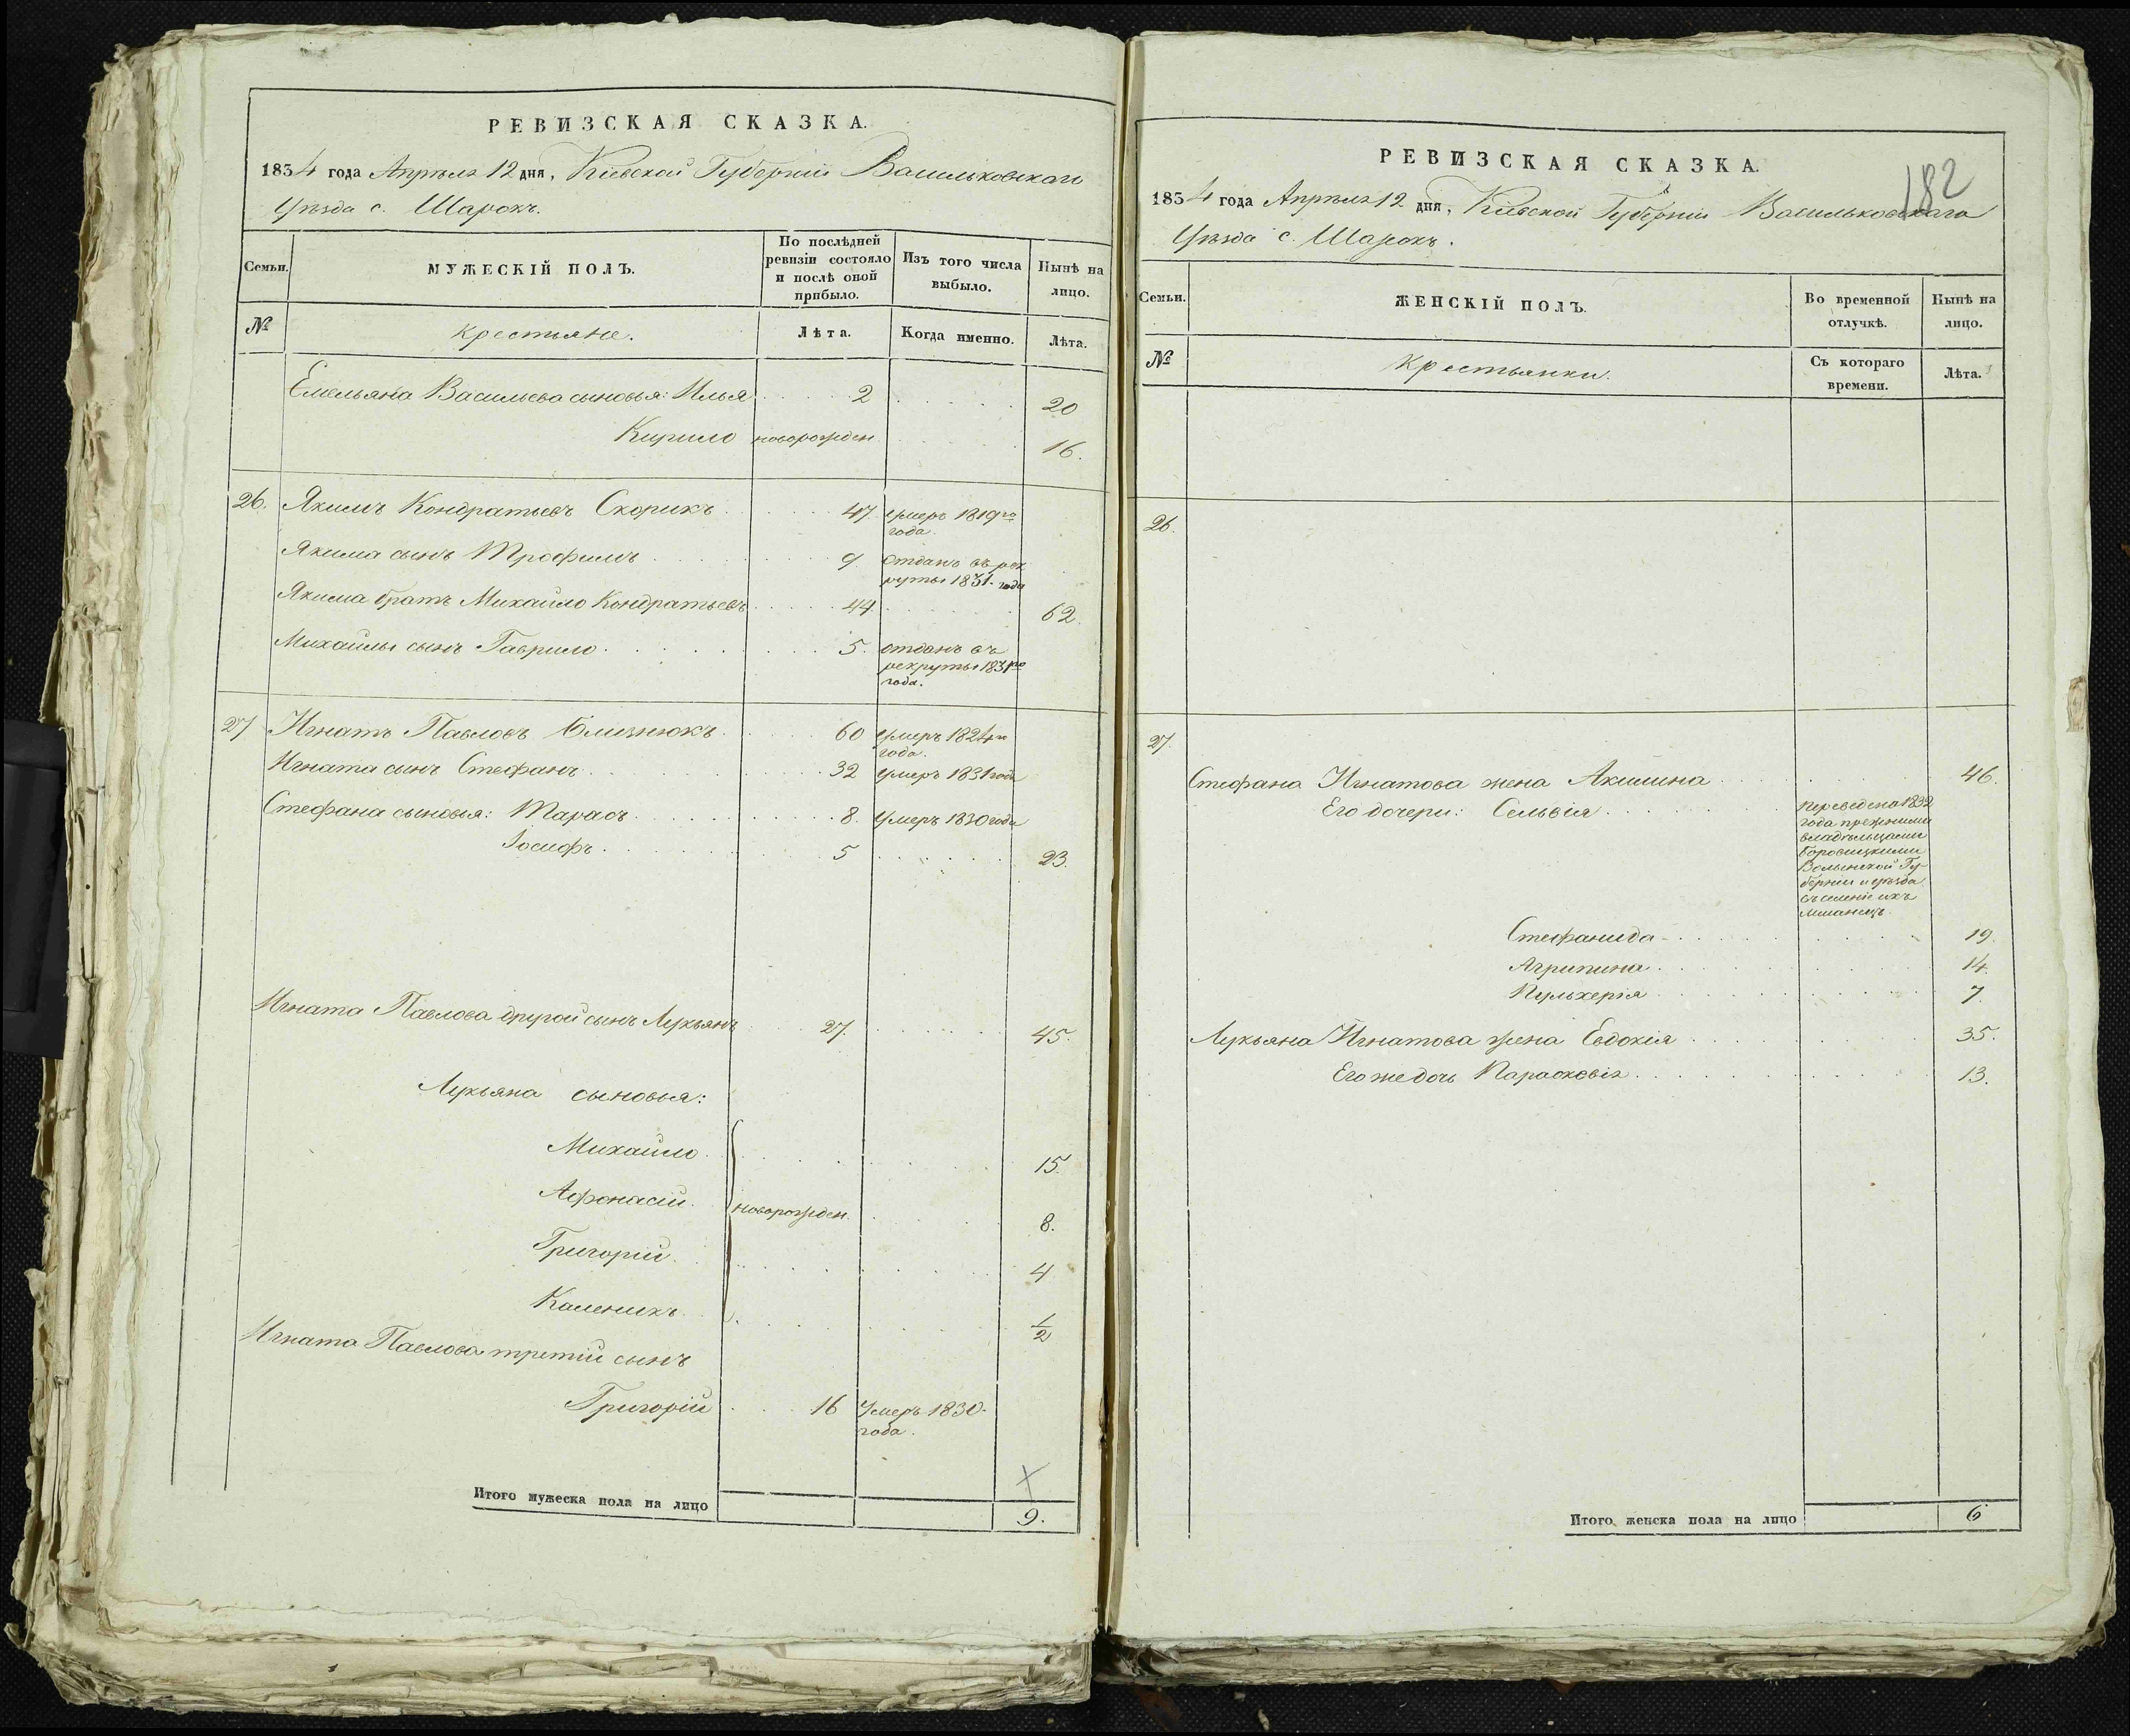 РЕВИЗСКАЯ СКАЗКА.
1834 года Апрѣля 12 дня, Кіевской Губерніи Васильковскаго
Уѣзда с. Шарокъ.
Семьи.
МУЖЕСКІЙ ПОЛЪ.
По послѣдней ревизіи состояло и послѣ оной прибыло.
Изъ того числа выбыло.
Нынѣ на лицо.
№
Крестьяне.
Лѣта.
Когда именно.
Лѣта.
Емельяна Васильева сыновья: Илья 2 20
Кирило новорожден 16.
26. Якимъ Кондратьевъ Скорикъ 47. умеръ 1819го
года.
Якима сынъ Трофимъ 9. отданъ въ рек
руты 1831. года
Якима братъ Михайло Кондратьевъ 44. 62.
Михайлы сынъ Гаврило 5. отданъ въ
рекруты 1831го
года.
27 Игнатъ Павловъ Близнюкъ 60 умеръ 1824го
года.
Игната сынъ Стефанъ 32 умеръ 1831 года
Стефана сыновья: Тарасъ 8. умеръ 1830 года
Іосифъ 5 23.
Игната Павлова другой сынъ Лукьянъ 27. 45.
Лукьяна сыновья:
Михайло 15.
Афонасій. новорожден. 8.
Григорій. 4
Каленикъ. 1/2
Игната Павлова третій сынъ
Григорій 16 Умеръ 1830.
года.
Итого мужеска пола на лицо 9.
РЕВИЗСКАЯ СКАЗКА.
182
1834 года Апрѣля 12 дня, Кіевской Губерніи Васильковскаго
Уѣзда с. Шарокъ.
Семьи.
ЖЕНСКІЙ ПОЛЪ.
Во временной отлучкѣ.
Нынѣ на лицо.
№
Крестьянки.
Съ котораго времени.
Лѣта.
26.
27.
Стефана Игнатова жена Акилина 46.
Его дочери: Сельвія Переведена 1832
года прежними
владѣльцами
Волынской Гу-
берніи и уѣзда
въ селеніе ихъ
Стефанида 19.
Агрипина 14.
Пульхерія 7.
Лукьяна Игнатова жена Евдокія 35.
Его же дочь Парасковія 13.
Итого женска пола на лицо 6